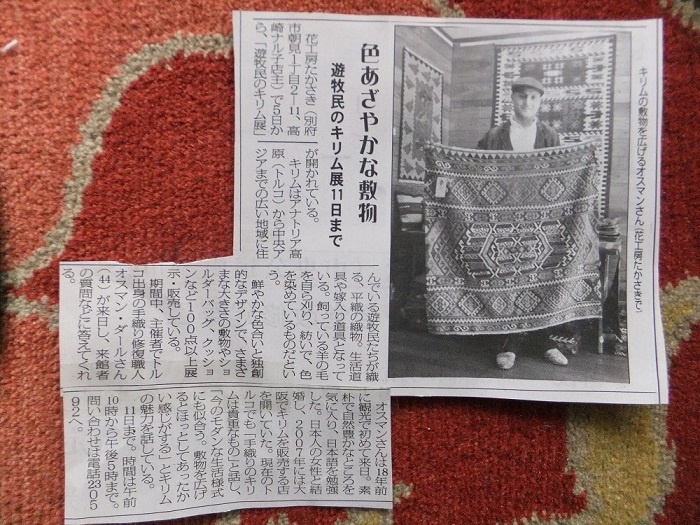 色あざやかな敷物
遊牧民のキリム展11日まで
キリムの敷物を広げるオスマンさん(花工房たかさきで)
花工房たかさき(別府
市朝見1丁目2―11、高
崎ナル子店主)で5日か
ら、「遊牧民のキリム展」
が開かれている。
キリムはアナトリア高
原(トルコ)から中央ア
ジアまでの広い地域に住
んでいる遊牧民たちが織
る、平織の織物。生活道
具や嫁入り道具となって
いる。飼っている羊の毛
を自ら刈り、紡いで、色
を染めているものだとい
う。
鮮やかな色合いと独創
的なデザインで、さまざ
まな大きさの敷物やショ
ルダーバッグ、クッショ
ンなど100点以上展
示・販売している。
期間中、主催者でトル
コ出身の手織り修復職人
オスマン・ダールさん
(44)が来日し、来館者
の質問などに答えてくれ
る。
オスマンさんは18年前
に観光で初めて来日。素
朴で自然豊かなところを
気に入り、日本語を勉強
した。日本人の女性と結
婚し、2007年には大
阪でキリムを販売する店
を開いていた。現在のト
ルコでも「手織りのキリ
ムは貴重なもの」と話し、
「今のモダンな生活様式
にも似合う。敷物を広げ
るとほっとしてあったか
い感じがする」とキリム
の魅力を話している。
11日まで。時間は午前
10時から午後5時まで。
問い合わせは電話2305
92へ。